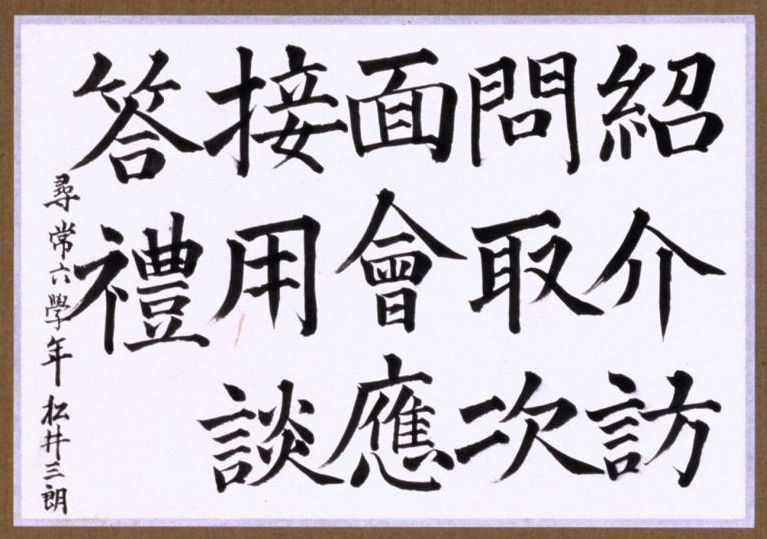 紹介訪
問取次
面會應
接用談
答禮
尋常六學年 松井三朗